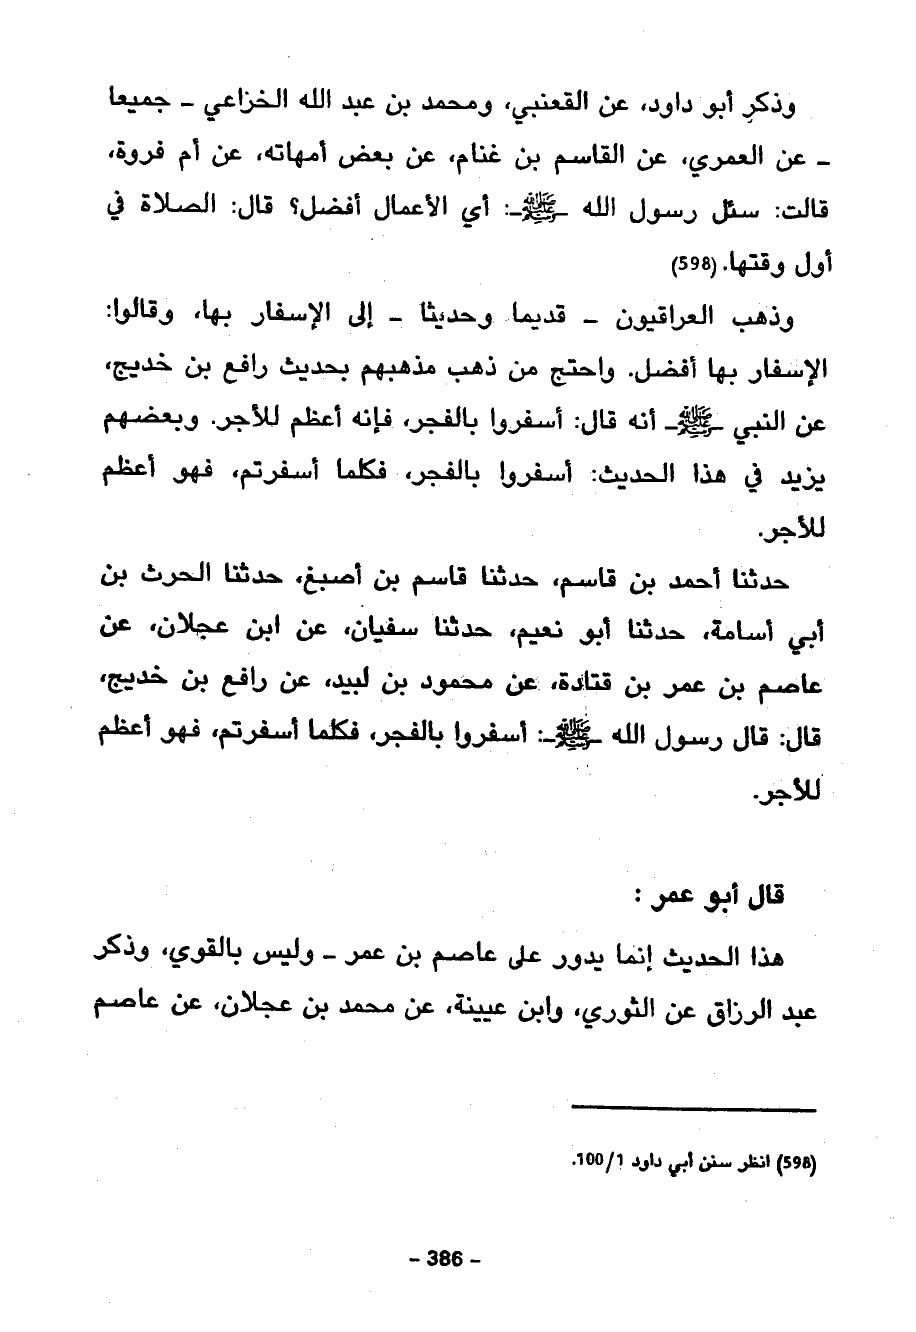 وذكر أبو داود، عن القعنبي، ومحمد بن عبد الله الخزاعي – جميعا
– عن العمري، عن القاسم بن غنام، عن بعض أمهاته، عن أم فروة،
قالت: سئل رسول الله –ﷺ–: أي الأعمال أفضل؟ قال: الصلاة في
أول وقتها. (598)
وذهب العراقيون – قديما وحديثا – إلى الإسفار بها، وقالوا:
الإسفار بها أفضل. واحتج من ذهب مذهبهم بحديث رافع بن خديج،
عن النبي –ﷺ– أنه قال: أسفروا بالفجر، فإنه أعظم للأجر. وبعضهم
يزيد في هذا الحديث: أسفروا بالفجر، فكلما أسفرتم، فهو أعظم
للأجر.
حدثنا أحمد بن قاسم، حدثنا قاسم بن أصبغ، حدثنا الحرث بن
أبي أسامة، حدثنا أبو نعيم، حدثنا سفيان، عن ابن عجلان، عن
عاصم بن عمر بن قتادة، عن محمود بن لبيد، عن رافع بن خديج،
قال: قال رسول الله –ﷺ–: أسفروا بالفجر، فكلما أسفرتم، فهو أعظم
للأجر.
قال أبو عمر :
هذا الحديث إنما يدور على عاصم بن عمر – وليس بالقوي، وذكر
عبد الرزاق عن الثوري، وابن عيينة، عن محمد بن عجلان، عن عاصم
(598) انظر سنن أبي داود 100/1.
– 386 –